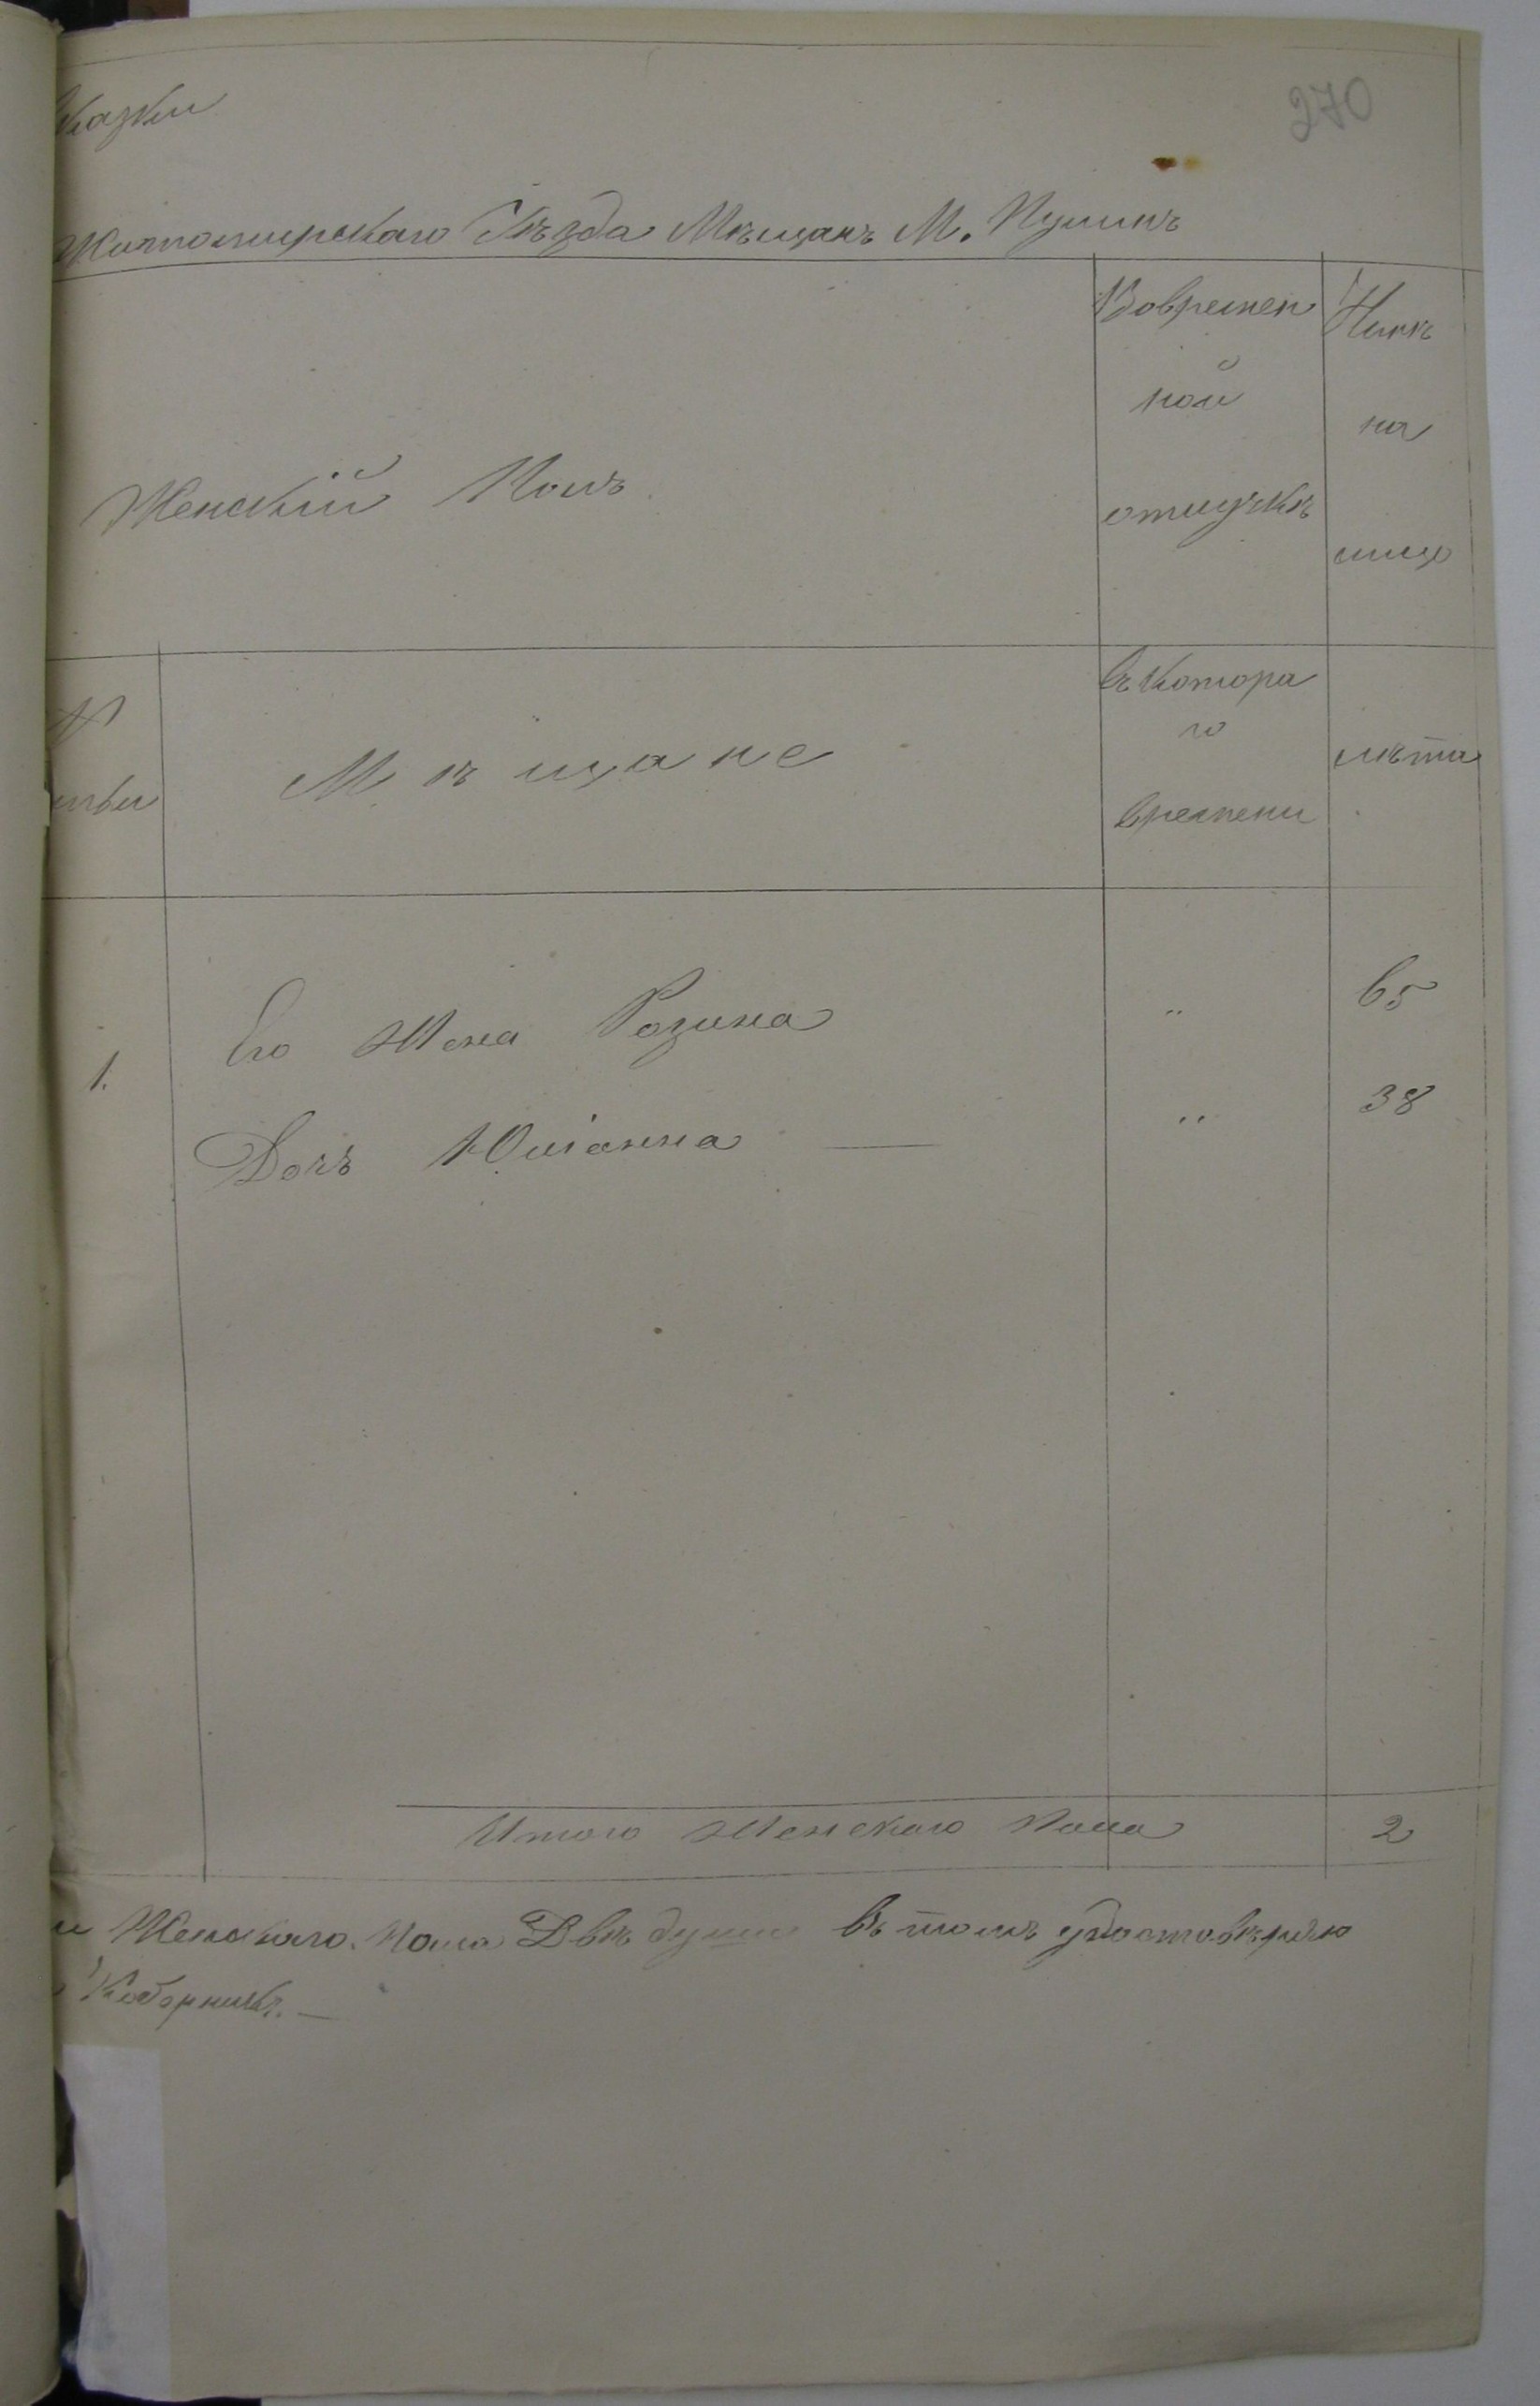 270
сказки
Житомирскаго Уѣзда Мѣщанъ М. Пулинъ
Женскій Полъ
Вовремен
ной
отлучкѣ
Нынѣ
на
лицо
№
Мѣщане
съ котора
го
времени
лѣта
1.
Его Жена Розина „ 65
Дочь Юлiанна — „ 38
Итого Женскаго Пола 2
и Женскаго Пола Двѣ души Въ томъ удостовѣряю